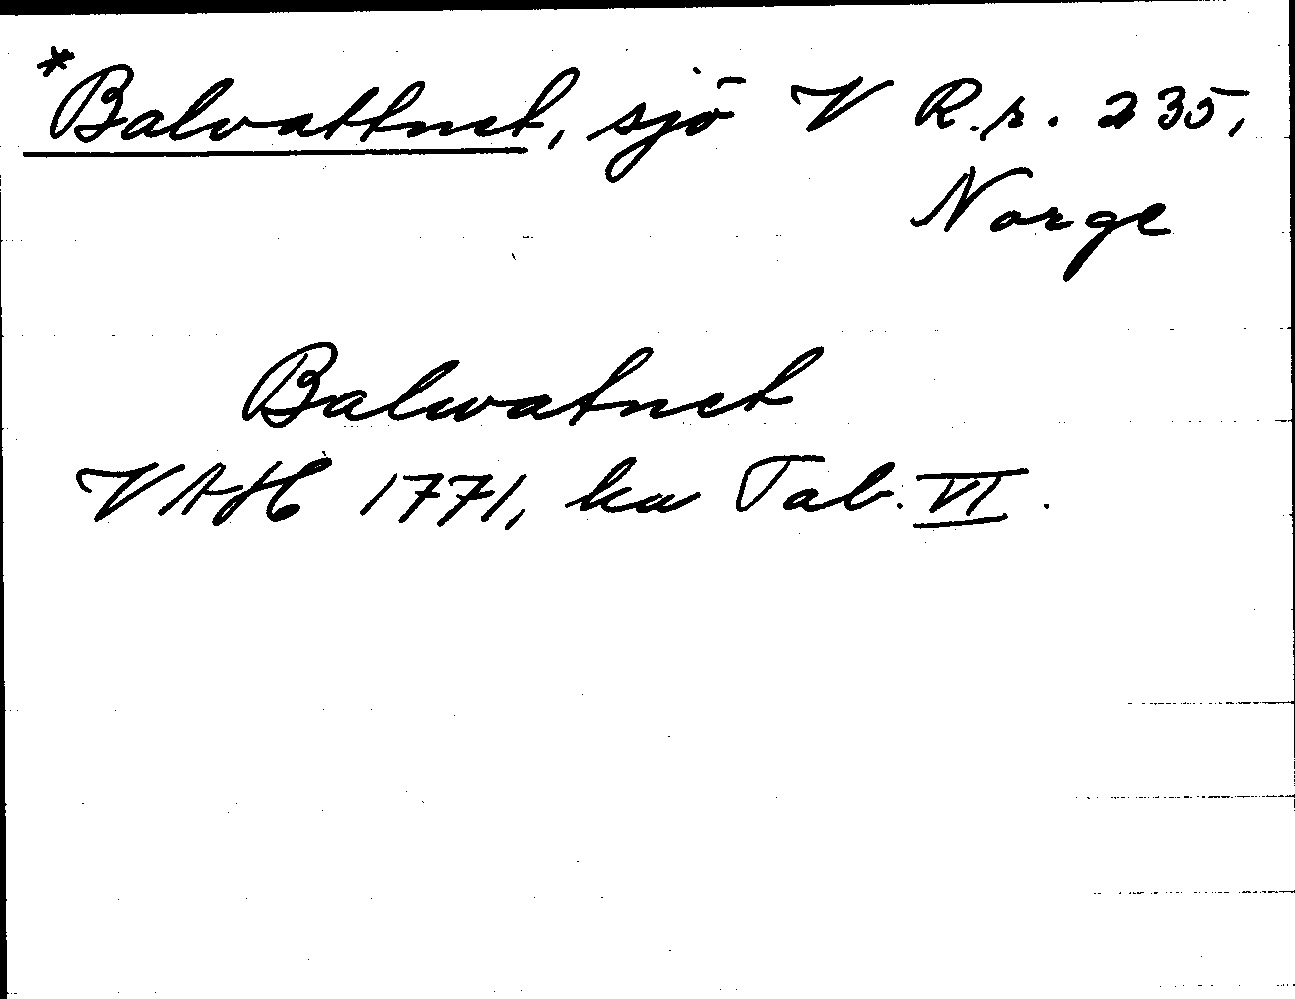 *Balvattnet, sjö V R.r. 235,
Norge
Balwatnet
VAH 1771, ka Tab. VI.